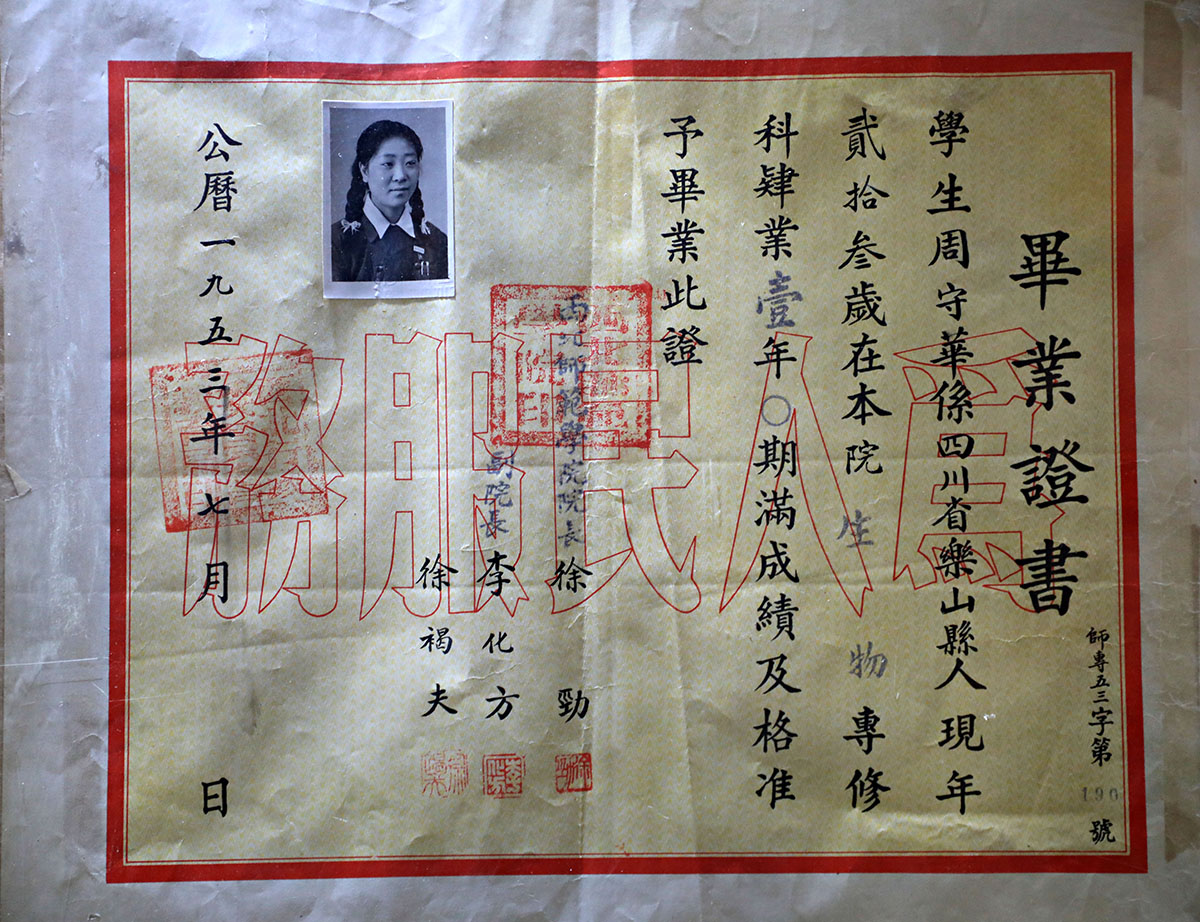 畢業證書
師專五三字第190號
學生周守華係四川省樂山縣人現年
貳拾叁歲在本院生物專修
科肄業壹年〇期滿成績及格准
予畢業此證
西北師範學院院長徐勁
副院長李化方
徐褐夫
公曆一九五三年七月 日
為人民服務